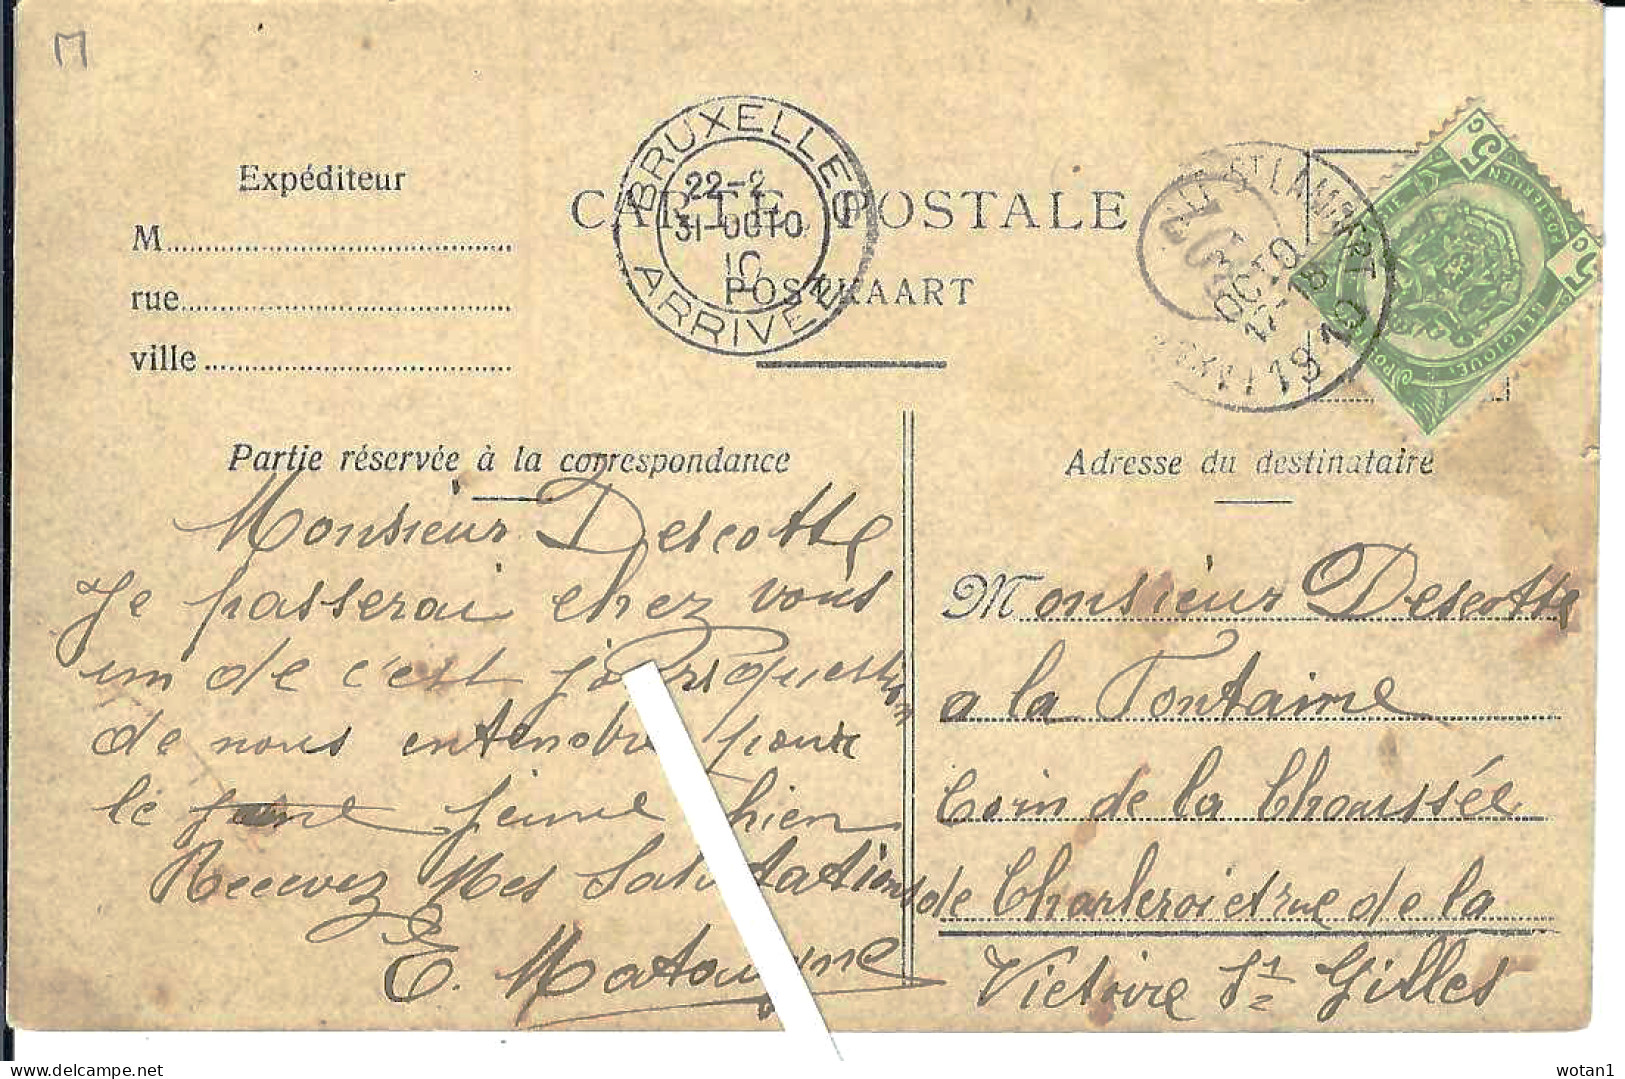 Expéditeur
M
rue
ville
CARTE POSTALE
POSTKAART
BRUXELLES
22-2
31-OCTO
10
ARRIVEE
ST LAMBERT
OCTO
18
1910
5c
5c
BELGIQUE
Partie réservée à la correspondance
Monsieur Descotte
Je passerai chez vous
un de c'est jours question
de nous entendre pour
le jeune chien
Recevez Mes Salutations
E.
Adresse du destinataire
Monsieur Descotte
a la Fontaine
Coin de la Choussée
de Charleroi et rue de la
Victoire St Gilles
wotan1